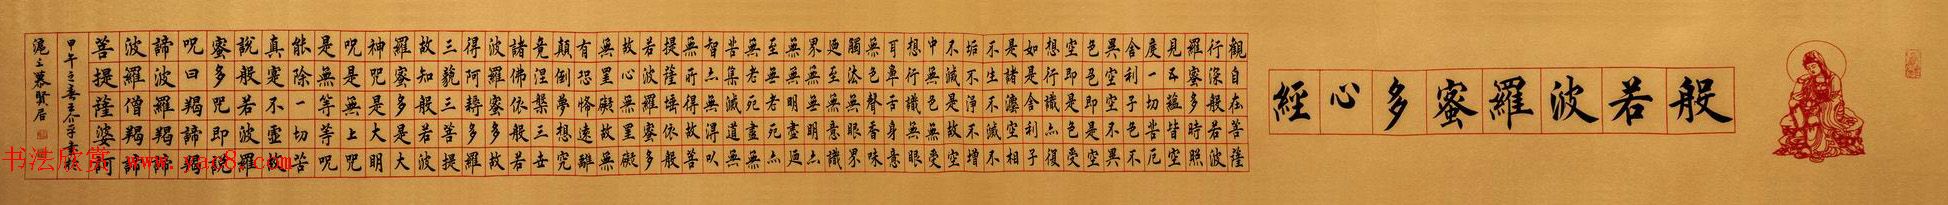 般若波羅蜜多心經
觀自在菩薩
行深般若波
羅蜜多時照
見五蘊皆空
度一切苦厄
舍利子色不
異空空不異
色色即是空
空即是色受
想行識亦復
如是舍利子
是諸法空相
不生不滅不
垢不淨不增
不減是故空
中無色無受
想行識無眼
耳鼻舌身意
無色聲香味
觸法無眼界
迺至無意識
界無無明亦
無無明盡迺
至無老死亦
無老死盡無
苦集滅道無
智亦無得以
無所得故菩
提薩埵依般
若波羅蜜多
故心無罣礙
無罣礙故無
有恐怖遠離
顛倒夢想究
竟涅槃三世
諸佛依般若
波羅蜜多故
得阿耨多羅
三藐三菩提
故知般若波
羅蜜多是大
神咒是大明
咒是無上咒
是無等等咒
能除一切苦
真實不虛故
說般若波羅
蜜多咒即說
咒曰羯諦羯
諦波羅羯諦
波羅僧羯諦
菩提薩婆訶
甲午之春王介平書於
滬上慕賢居
书法欣赏 www.yac8.com